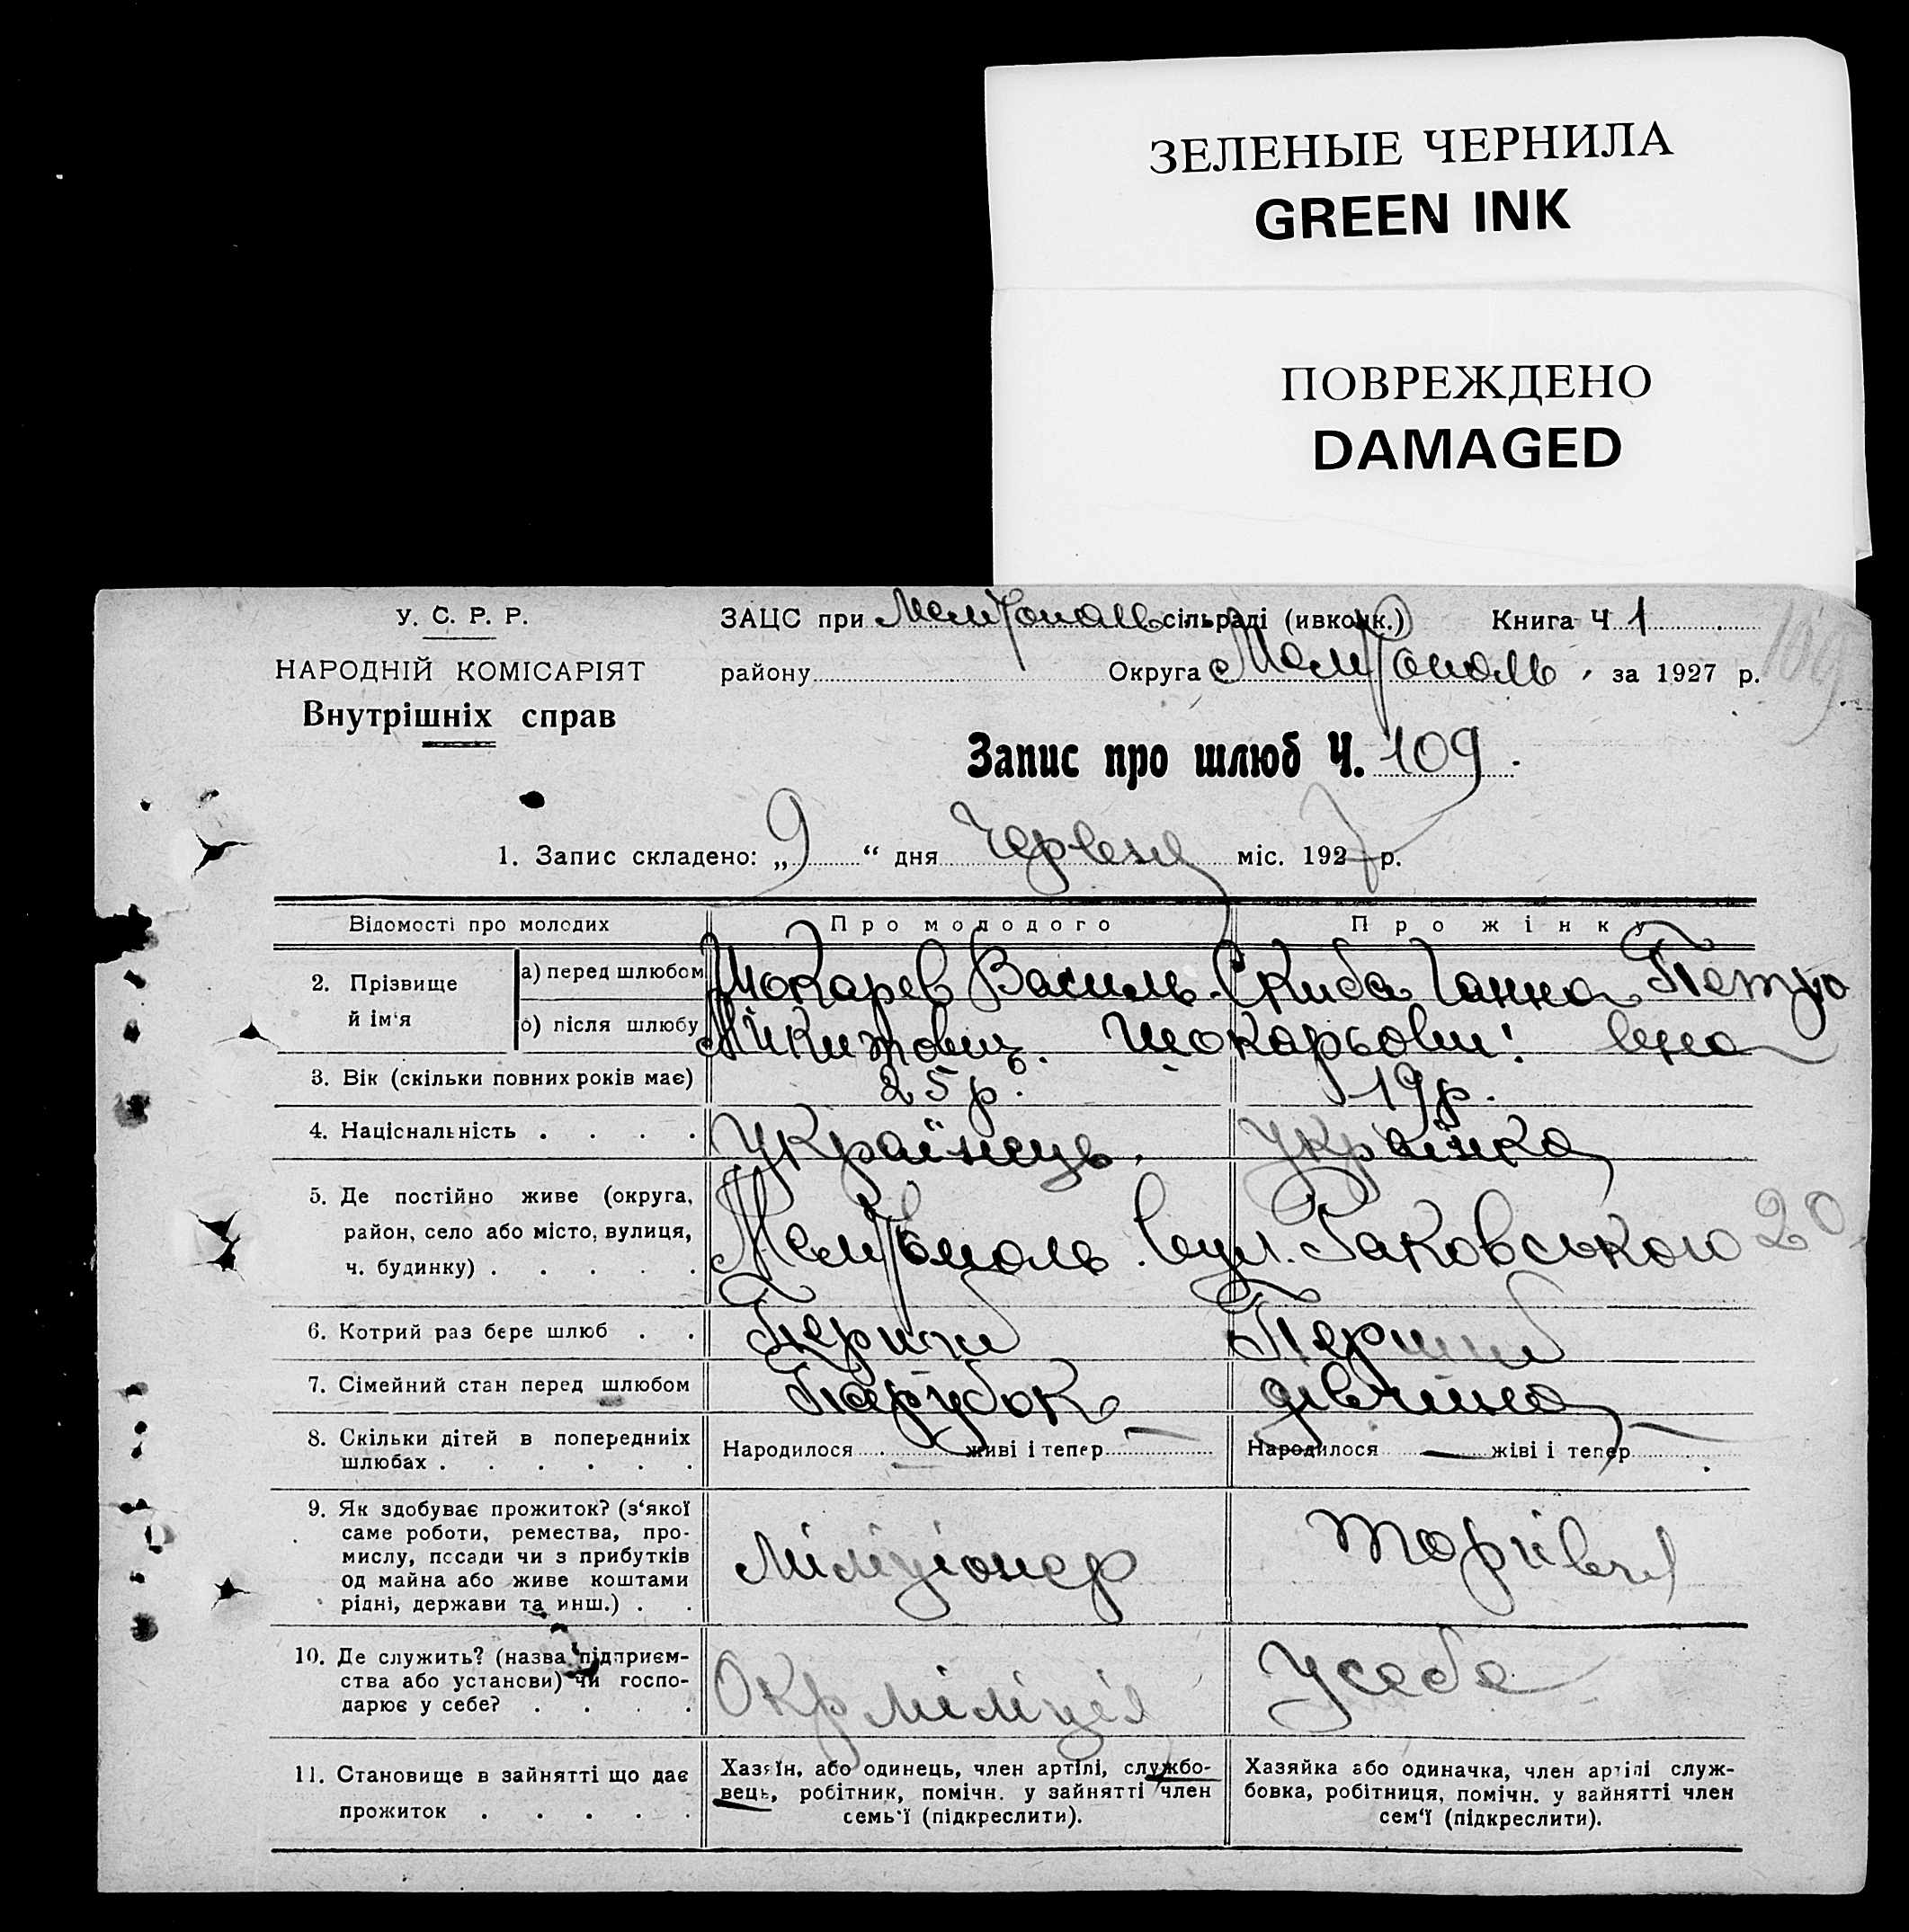 ЗЕЛЕНЫЕ ЧЕРНИЛА
GREEN INK
ПОВРЕЖДЕНО
DAMAGED
У. С. Р. Р.
НАРОДНІЙ КОМІСАРІЯТ
Внутрішніх справ
ЗАЦС при Мелітополь сільраді (ивконк.) Книга Ч 1
району Округа Мелітополь, за 1927 р.
109
Запис про шлюб Ч. 109.
1. Запис складено: „9“ дня Червня міс. 1927 р.
Відомості про молодих
Про молодого
Про жінку
2. Прізвище й ім'я
а) перед шлюбом
Шокарев Василь
Скиба Ганна Петро
б) після шлюбу
Микитович. Шокарьови! вна
3. Вік (скільки повних років має)
25 р.
19 р.
4. Національність . . . .
Українець.
Українка
5. Де постійно живе (округа,
район, село або місто, вулиця,
ч. будинку) . . . . .
Мелітополь. вул. Раковського 20
6. Котрий раз бере шлюб . .
Перший
Перший
7. Сімейний стан перед шлюбом
Парубок
дівчина
8. Скільки дітей в попередниіх
шлюбах . . . . . .
Народилося — живі і тепер —
Народилося — жіві і тепер —
9. Як здобуває прожиток? (з‘якої
саме роботи, ремества, про-
мислу, посади чи з прибутків
од майна або живе коштами
рідні, держави та инш.) . .
Міліціонер
10. Де служить? (назва підприєм-
ства або установи) чи госпо-
дарює у себе? . . . .
Окр міліція
У себе
11. Становище в зайнятті що дає
прожиток . . . . .
Хазяїн, або одинець, член артілі, службо-
вець, робітник, помічн. у зайнятті член
семь‘ї (підкреслити).
Хазяйка або одиначка, член артілі служ-
бовка, робітниця, помічн. у зайнятті член
сем‘ї (підкреслити).